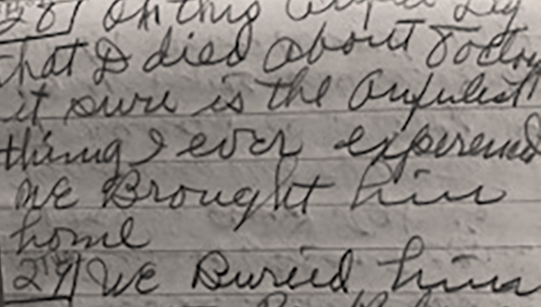 28] On this awful day
that D died about 7oclo
it sure is the Awfulest
thing I ever experenced
we Brought him
home
29] We Buried him